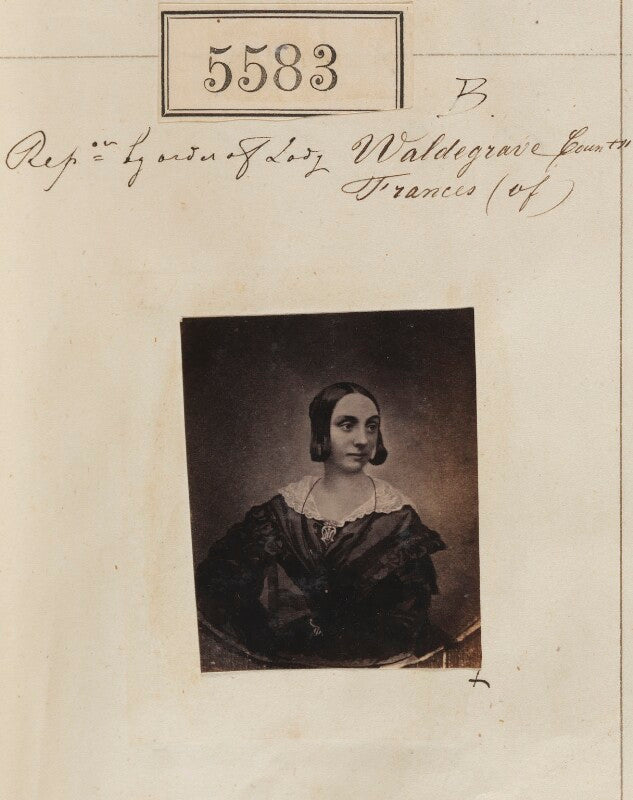 5583
B
Repon by order of Lady Waldegrave Countss
Frances (of)